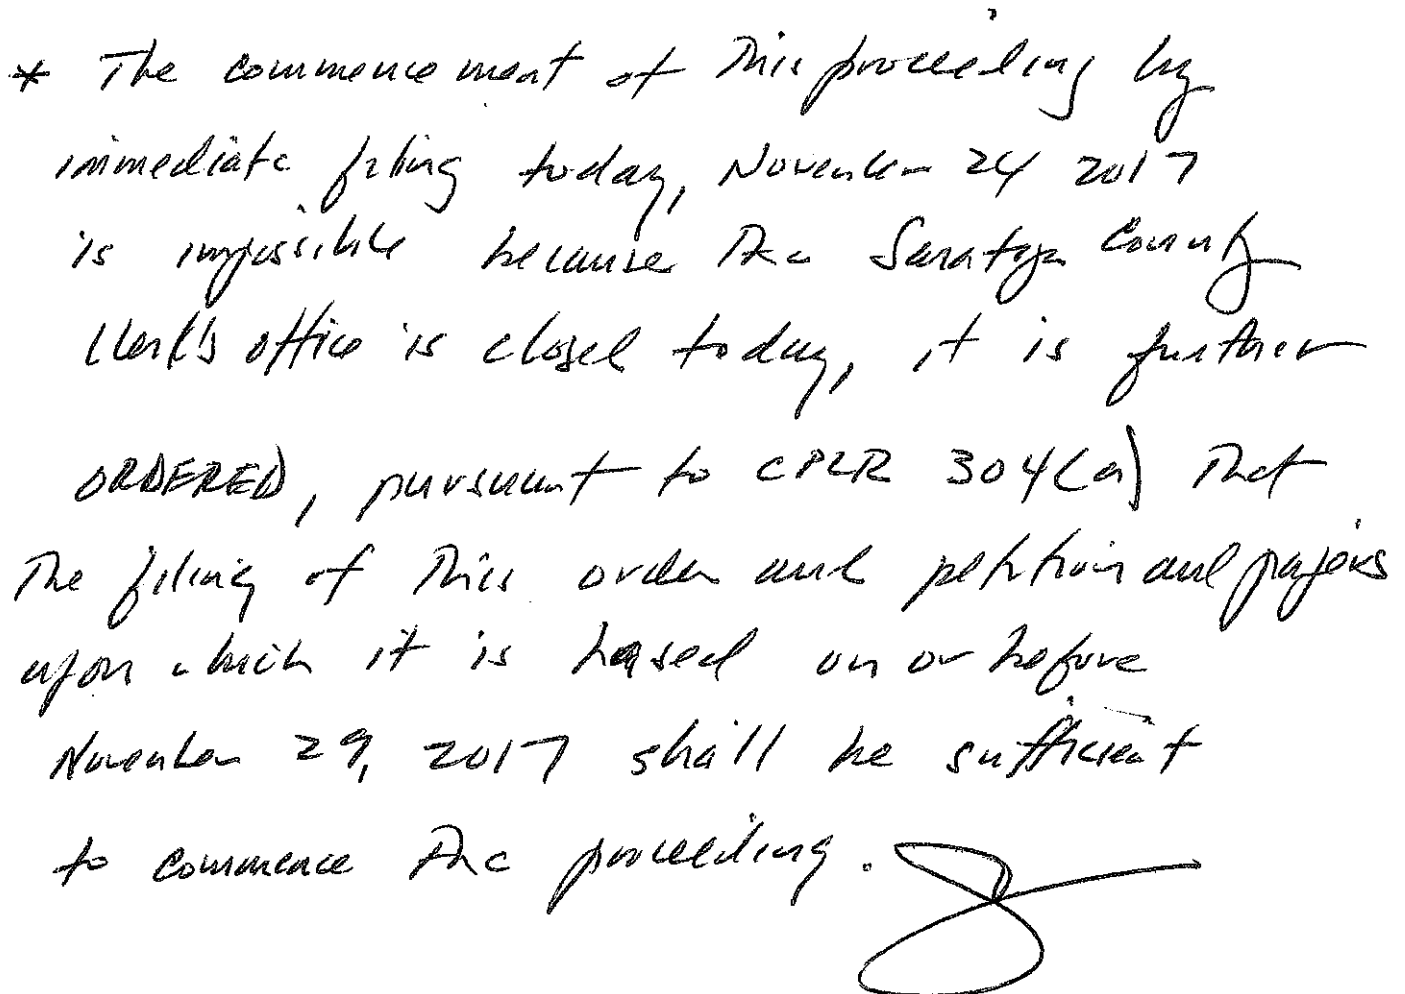 * The commencement of this proceeding by
immediate filing today, November 24 2017
is impossible because the Saratoga County
Clerk's office is closed today, it is further
ORDERED, pursuant to CPLR 304(a) that
the filing of this order and petition and papers
upon which it is based on or before
November 29, 2017 shall be sufficient
to commence the proceeding.